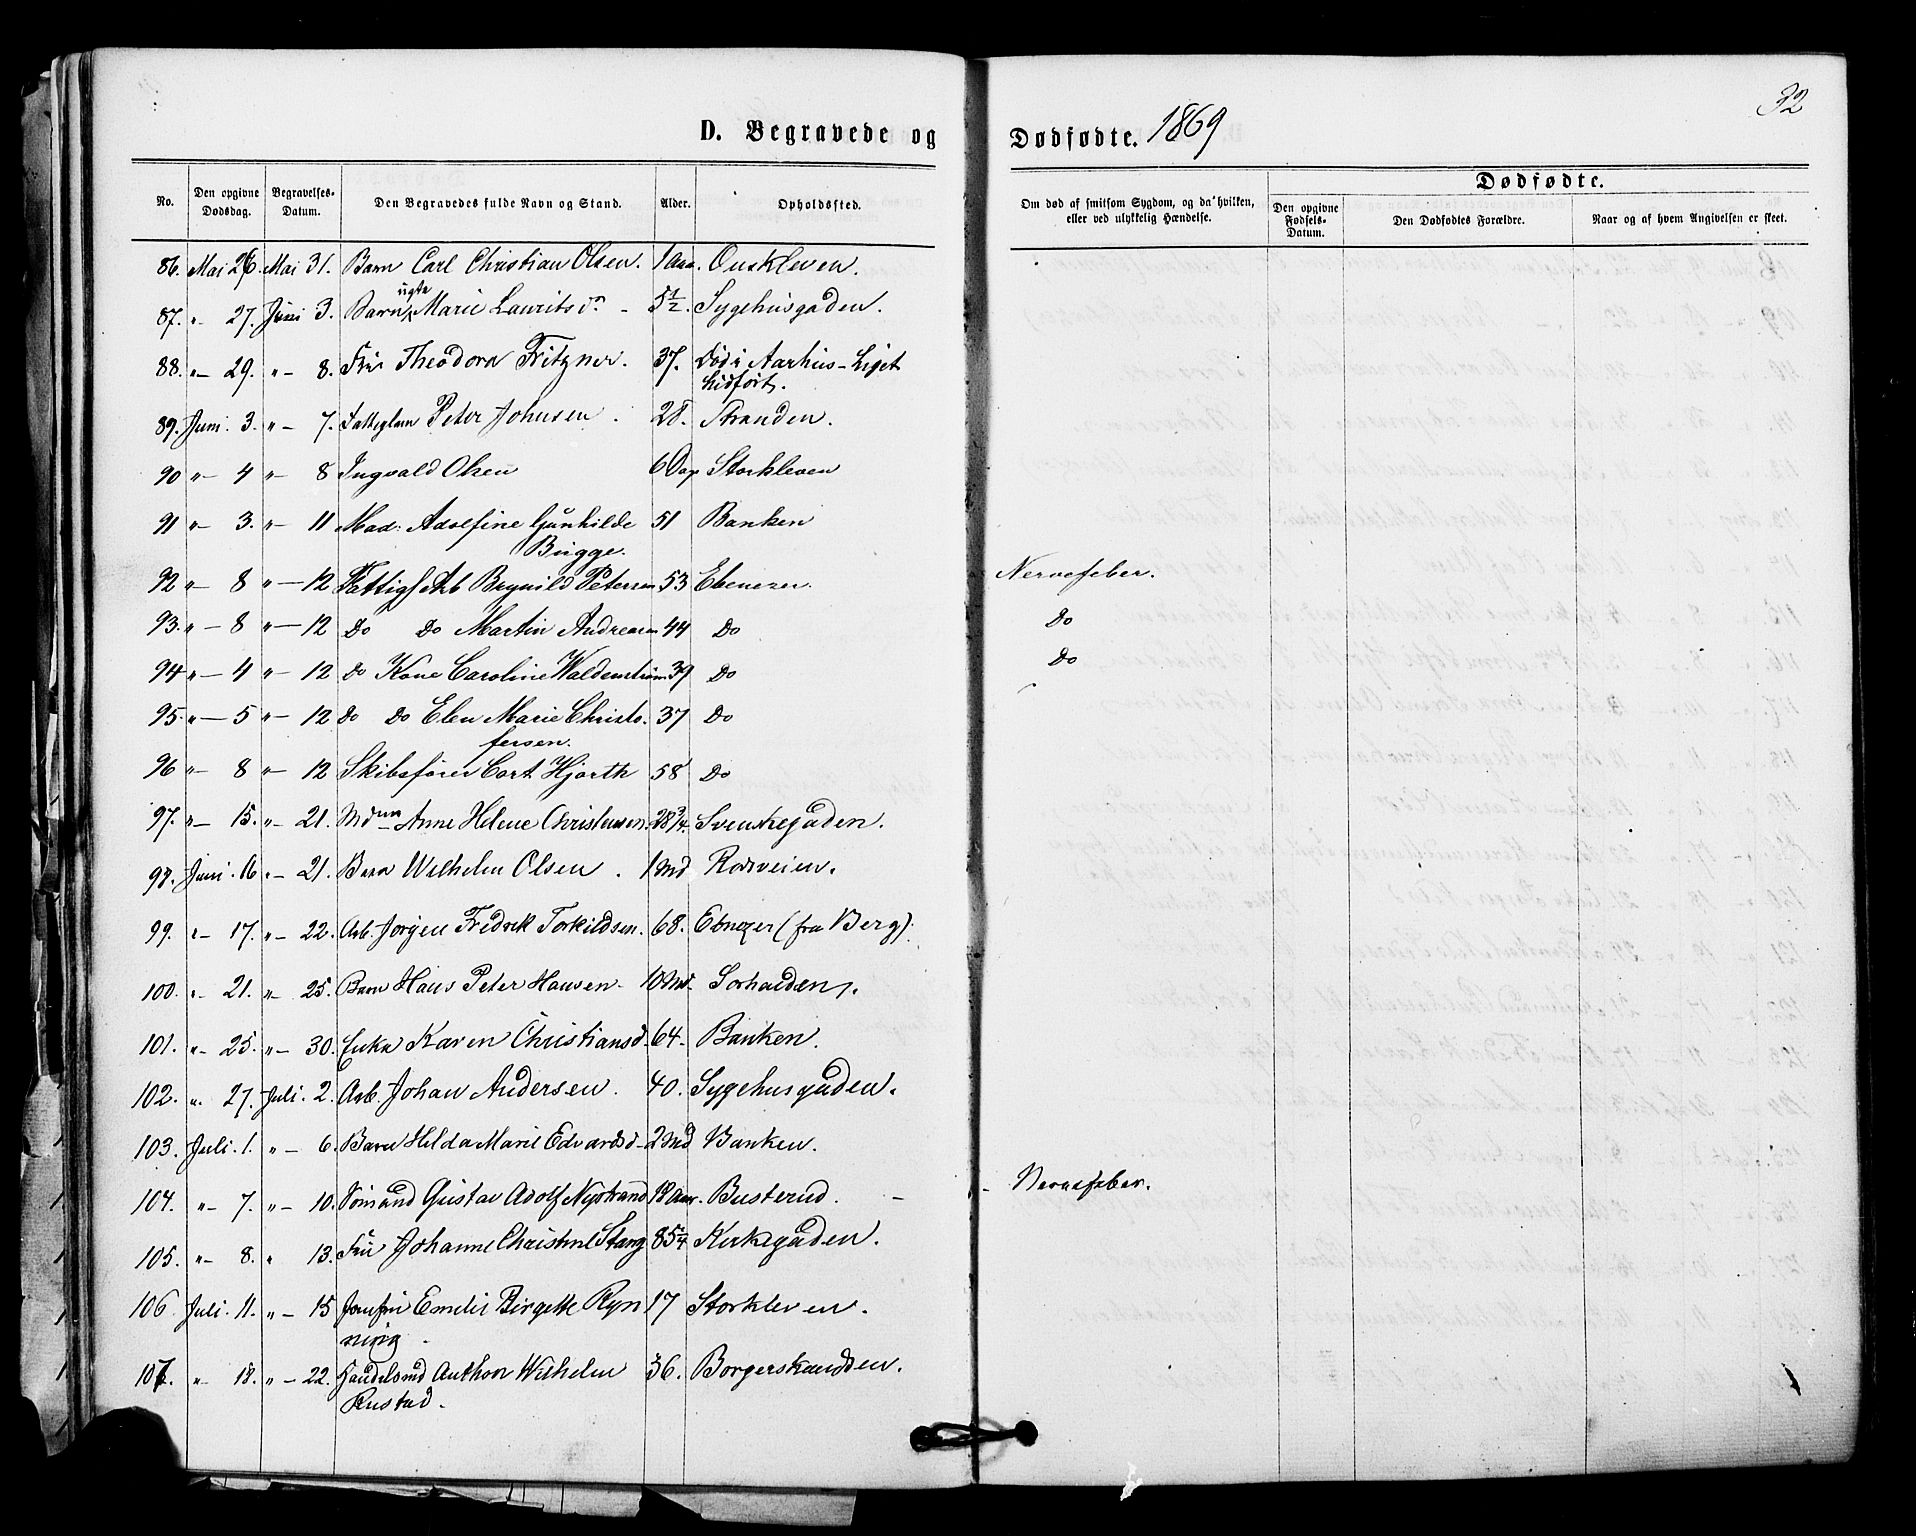 32
D. Begravede og Dødfødte. 1869
No. Den opgivne Dødsdag. Begravelses-Datum. Den Begravedes fulde Navn og Stand. Alder. Opholdssted. Om død af smitsom Sygdom, og da hvilken, eller ved ulykkelig Hændelse. Dødfødte.
Den opgivne Fødsels-Datum. Den Dødfødtes Forældre. Naar og af hvem Angivelsen er skeet.
86. Mai 26. Mai 31. Barn Carl Christian Olsen. 1 Aar. Ouskleven.
87. " 27. Juni 3. Barn ugte Marie Lauritsdr - 5½. Sygehusgaden.
88. " - 29. " - 8. Fru Theodora Fritzner. 37. Død i Aarhus - Liget
hidført.
89. Juni. 3. " - 7. Fattiglem Peter Johnsen. 28. Stranden.
90 " - 4 " - 8 Ingvald Olsen 6 Dage Storkleven
91 " - 3. " - 11 Mad: Adolfine Gunhilde 51 Banken
Bugge.
92 " - 8 " - 12 Fattigf Arb Brynild Petersen 53 Ebenezer. Nervefeber.
93. " - 8 " - 12 Do Do Martin Andresen 44 Do Do
94 " - 4 " - 12 Do Kone Caroline Waldenstrøm 39 Do Do
95. " - 5 " - 12 Do Do Elen Marie Christo- 37 Do
fersen.
96 " - 8 " - 12 Skibsfører Cort Hjorth 58 Do
97. " - 15. " - 21. Mdm Anne Helene Christensen. 28¾. Svenskegaden.
98. Juni. 16. " - 21. Barn Wilhelm Olsen. 1 Md Rødsveien.
99. " - 17. " - 22. Arb. Jørgen Fredrik Torkildsen. 68. Ebnezer (fra Berg).
100. " - 21. " - 25. Barn Hans Peter Hansen - 10 Md. Sorhalden.
101. " - 25. " - 30. Enke Karen Christiansd. 64. Banken.
102. " 27. Juli. 2. Arb. Johan Andersen. 40. Sygehusgaden.
103. Juli. 1. " - 6. Barn Hilda Marie Edvardsd - 2 Md Banken.
104. " - 7. " - 10. Sømand Gustav Adolf Nystrand 19 Aar. Busterud. - - Nervefeber.
105. " - 8. " 13. Fru Johanne Christine Stang 85¼ Kirkegaden.
106. Juli. 11. " - 15 Jomfru Emilie Birgette Ryn 17 Storkleven.
ning.
107. " - 18. " - 22. Handelsmd Anthon Wilhelm 36. Borgerskandsen.
Rustad.